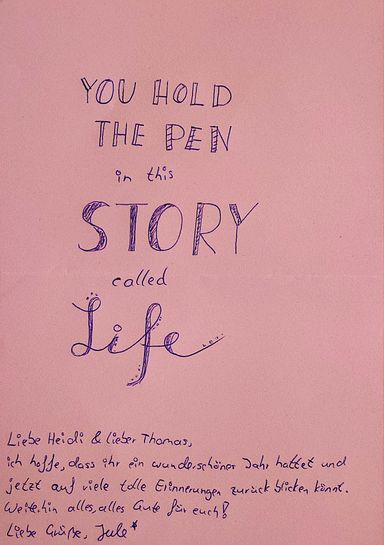 YOU HOLD
THE PEN
in this
STORY
called
Life
Liebe Heidi & lieber Thomas,
ich hoffe, dass ihr ein wunderschönes Jahr hattet und
jetzt auf viele tolle Erinnerungen zurück blicken könnt.
Weiterhin alles, alles Gute für euch!
Liebe Grüße, Jule*